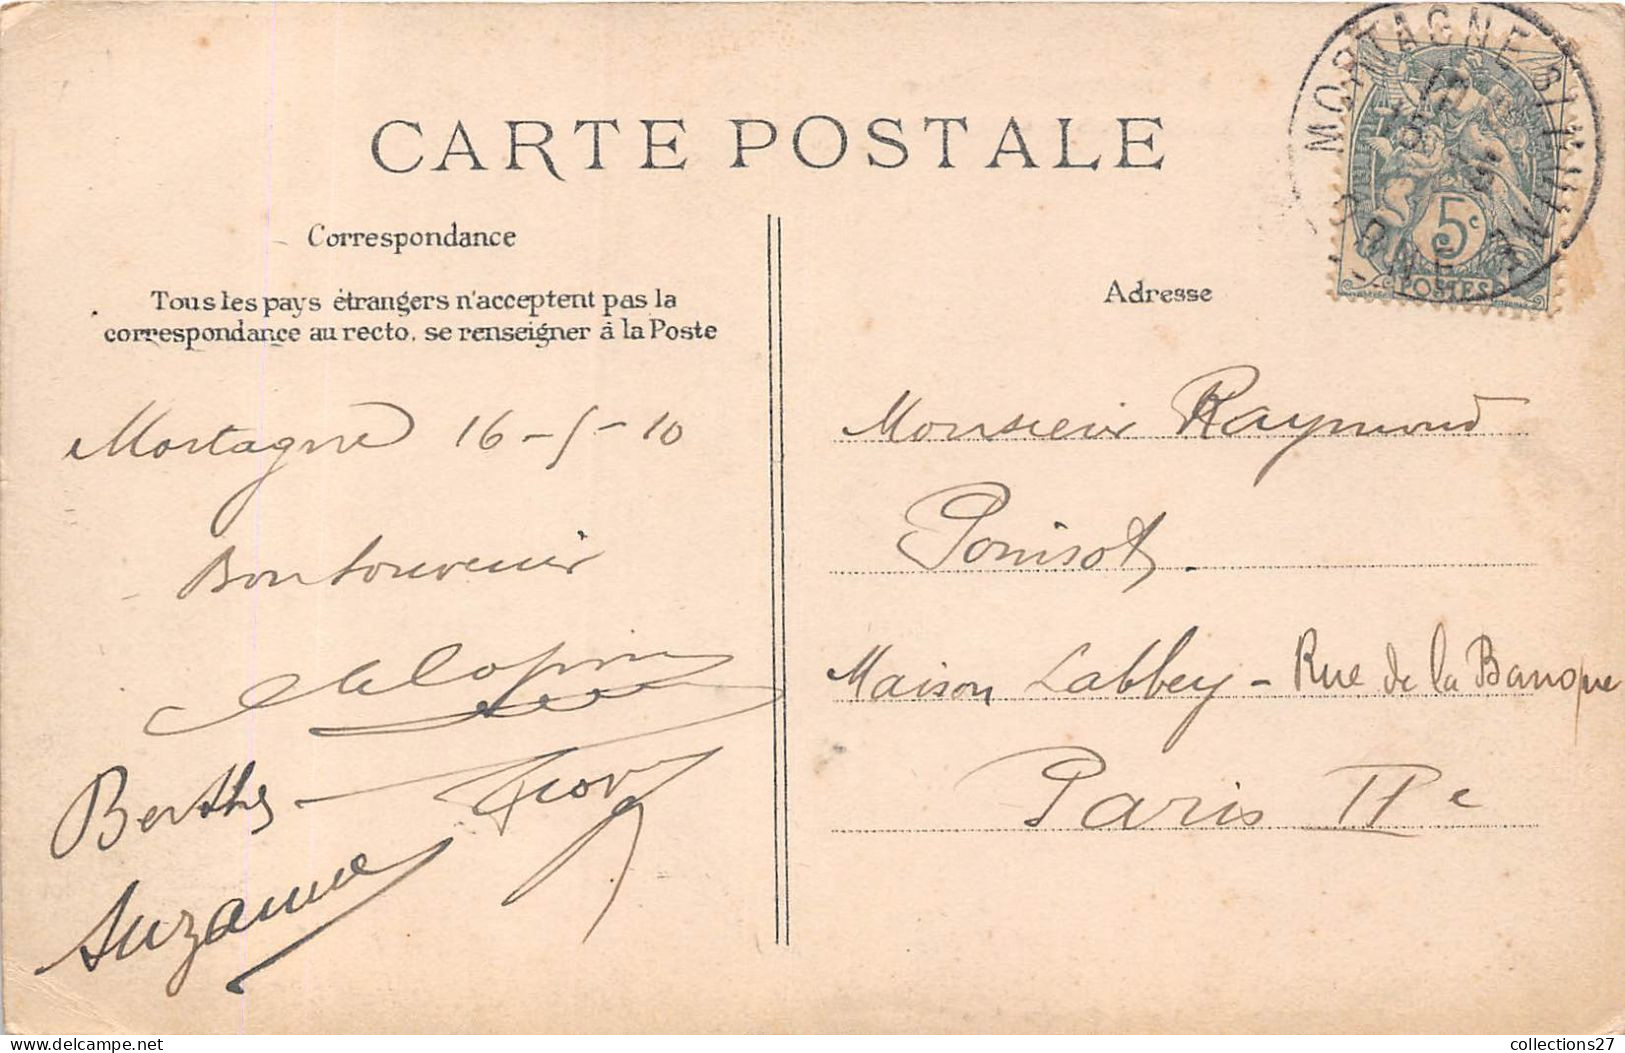 CARTE POSTALE
Correspondance
Tous les pays étrangers n'acceptent pas la
correspondance au recto, se renseigner à la Poste
Mortagne 16-5-10
Bon Souvenir
Berthe
Suzanne
MORTAGNE
5c
POSTES
Adresse
Monsieur Raymond
Poinsot.
Maison Labbey - Rue de la Banque
Paris IIe
collections27